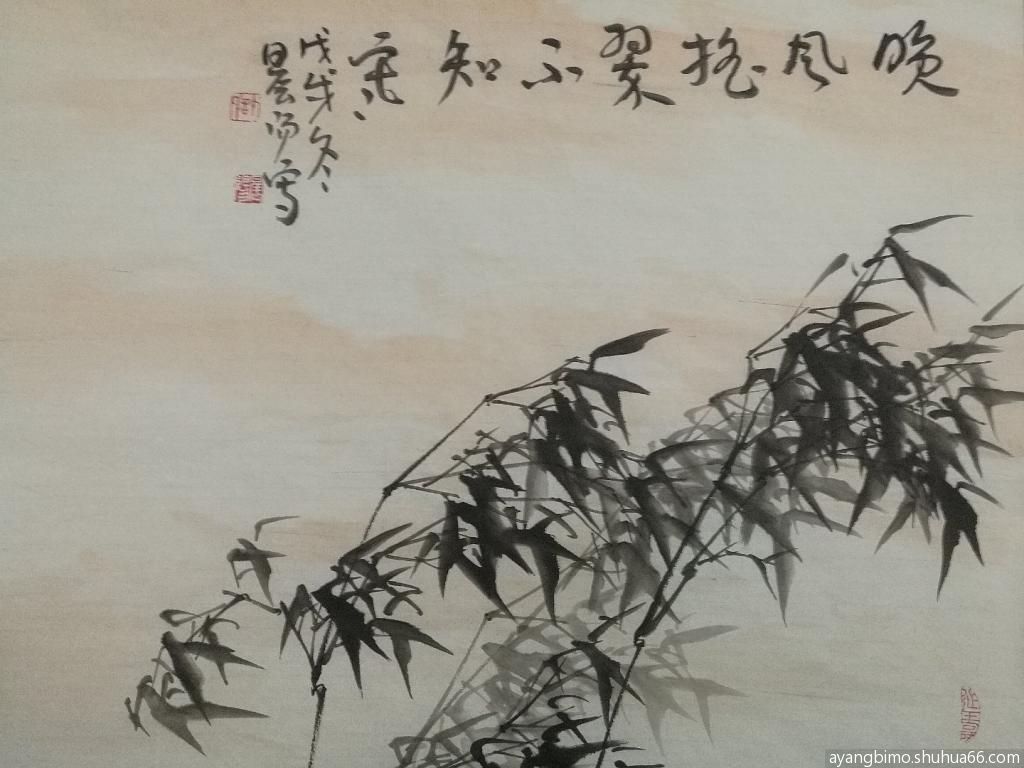 晚风摇翠不知寒
戊戌冬
写
ayangbimo.shuhua66.com